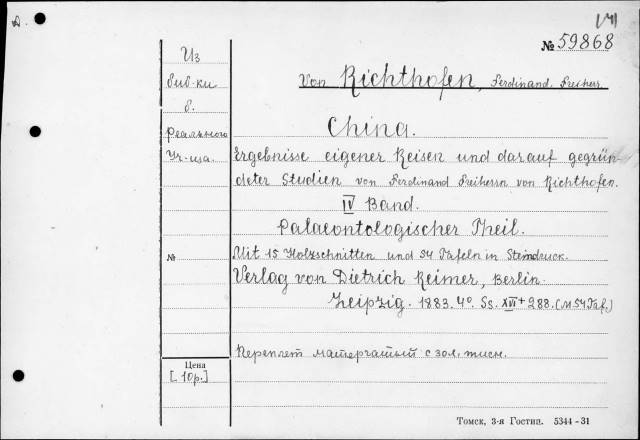 № 59868
Из
биб-ки
б.
реального
Уч-ща.
Von Richthofen, Ferdinand. Freiherr.
China.
Ergebnisse eigener Reisen und darauf gegrün-
deter Studien von Ferdinand Freiherrn von Richthofen.
IV Band.
Palaeontologischer Theil.
№
Mit 15 Holzschnitten und 54 Tafeln in Steindruck.
Verlag von Dietrich Reimer, Berlin.
Leipzig. 1883. 4°. Ss. XVI + 288. (M 54 Taf.)
Переплет матерчатый с зол. тисн.
Цена
[10р.]
Томск, 3-я Гостип. 5344-31